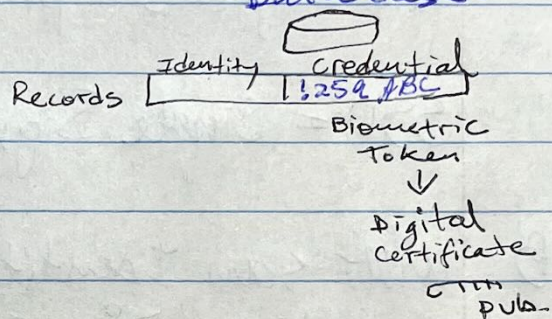 Identity Credential
Records !259 ABC
Biometric
Token
Digital
Certificate
pub